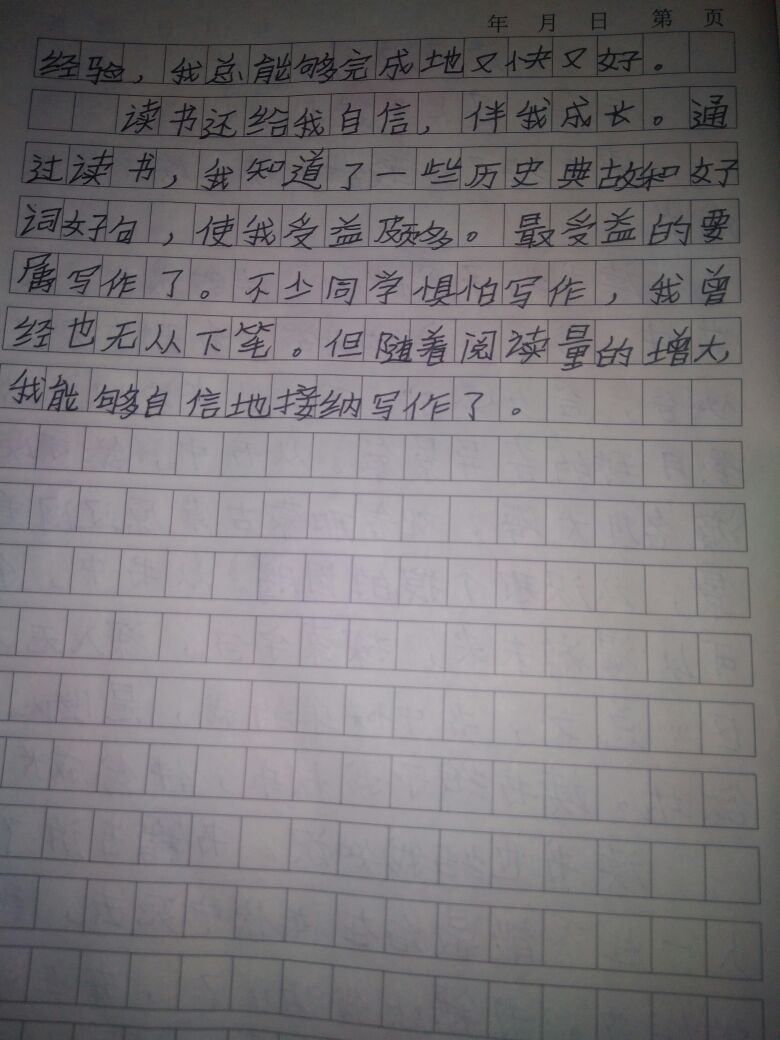 年 月 日 第 页
经验，我总能够完成地又快又好。
读书还给我自信，伴我成长。通
过读书，我知道了一些历史典故和好
词好句，使我受益颇多。最受益的要
属写作了。不少同学惧怕写作，我曾
经也无从下笔。但随着阅读量的增大，
我能够自信地接纳写作了。